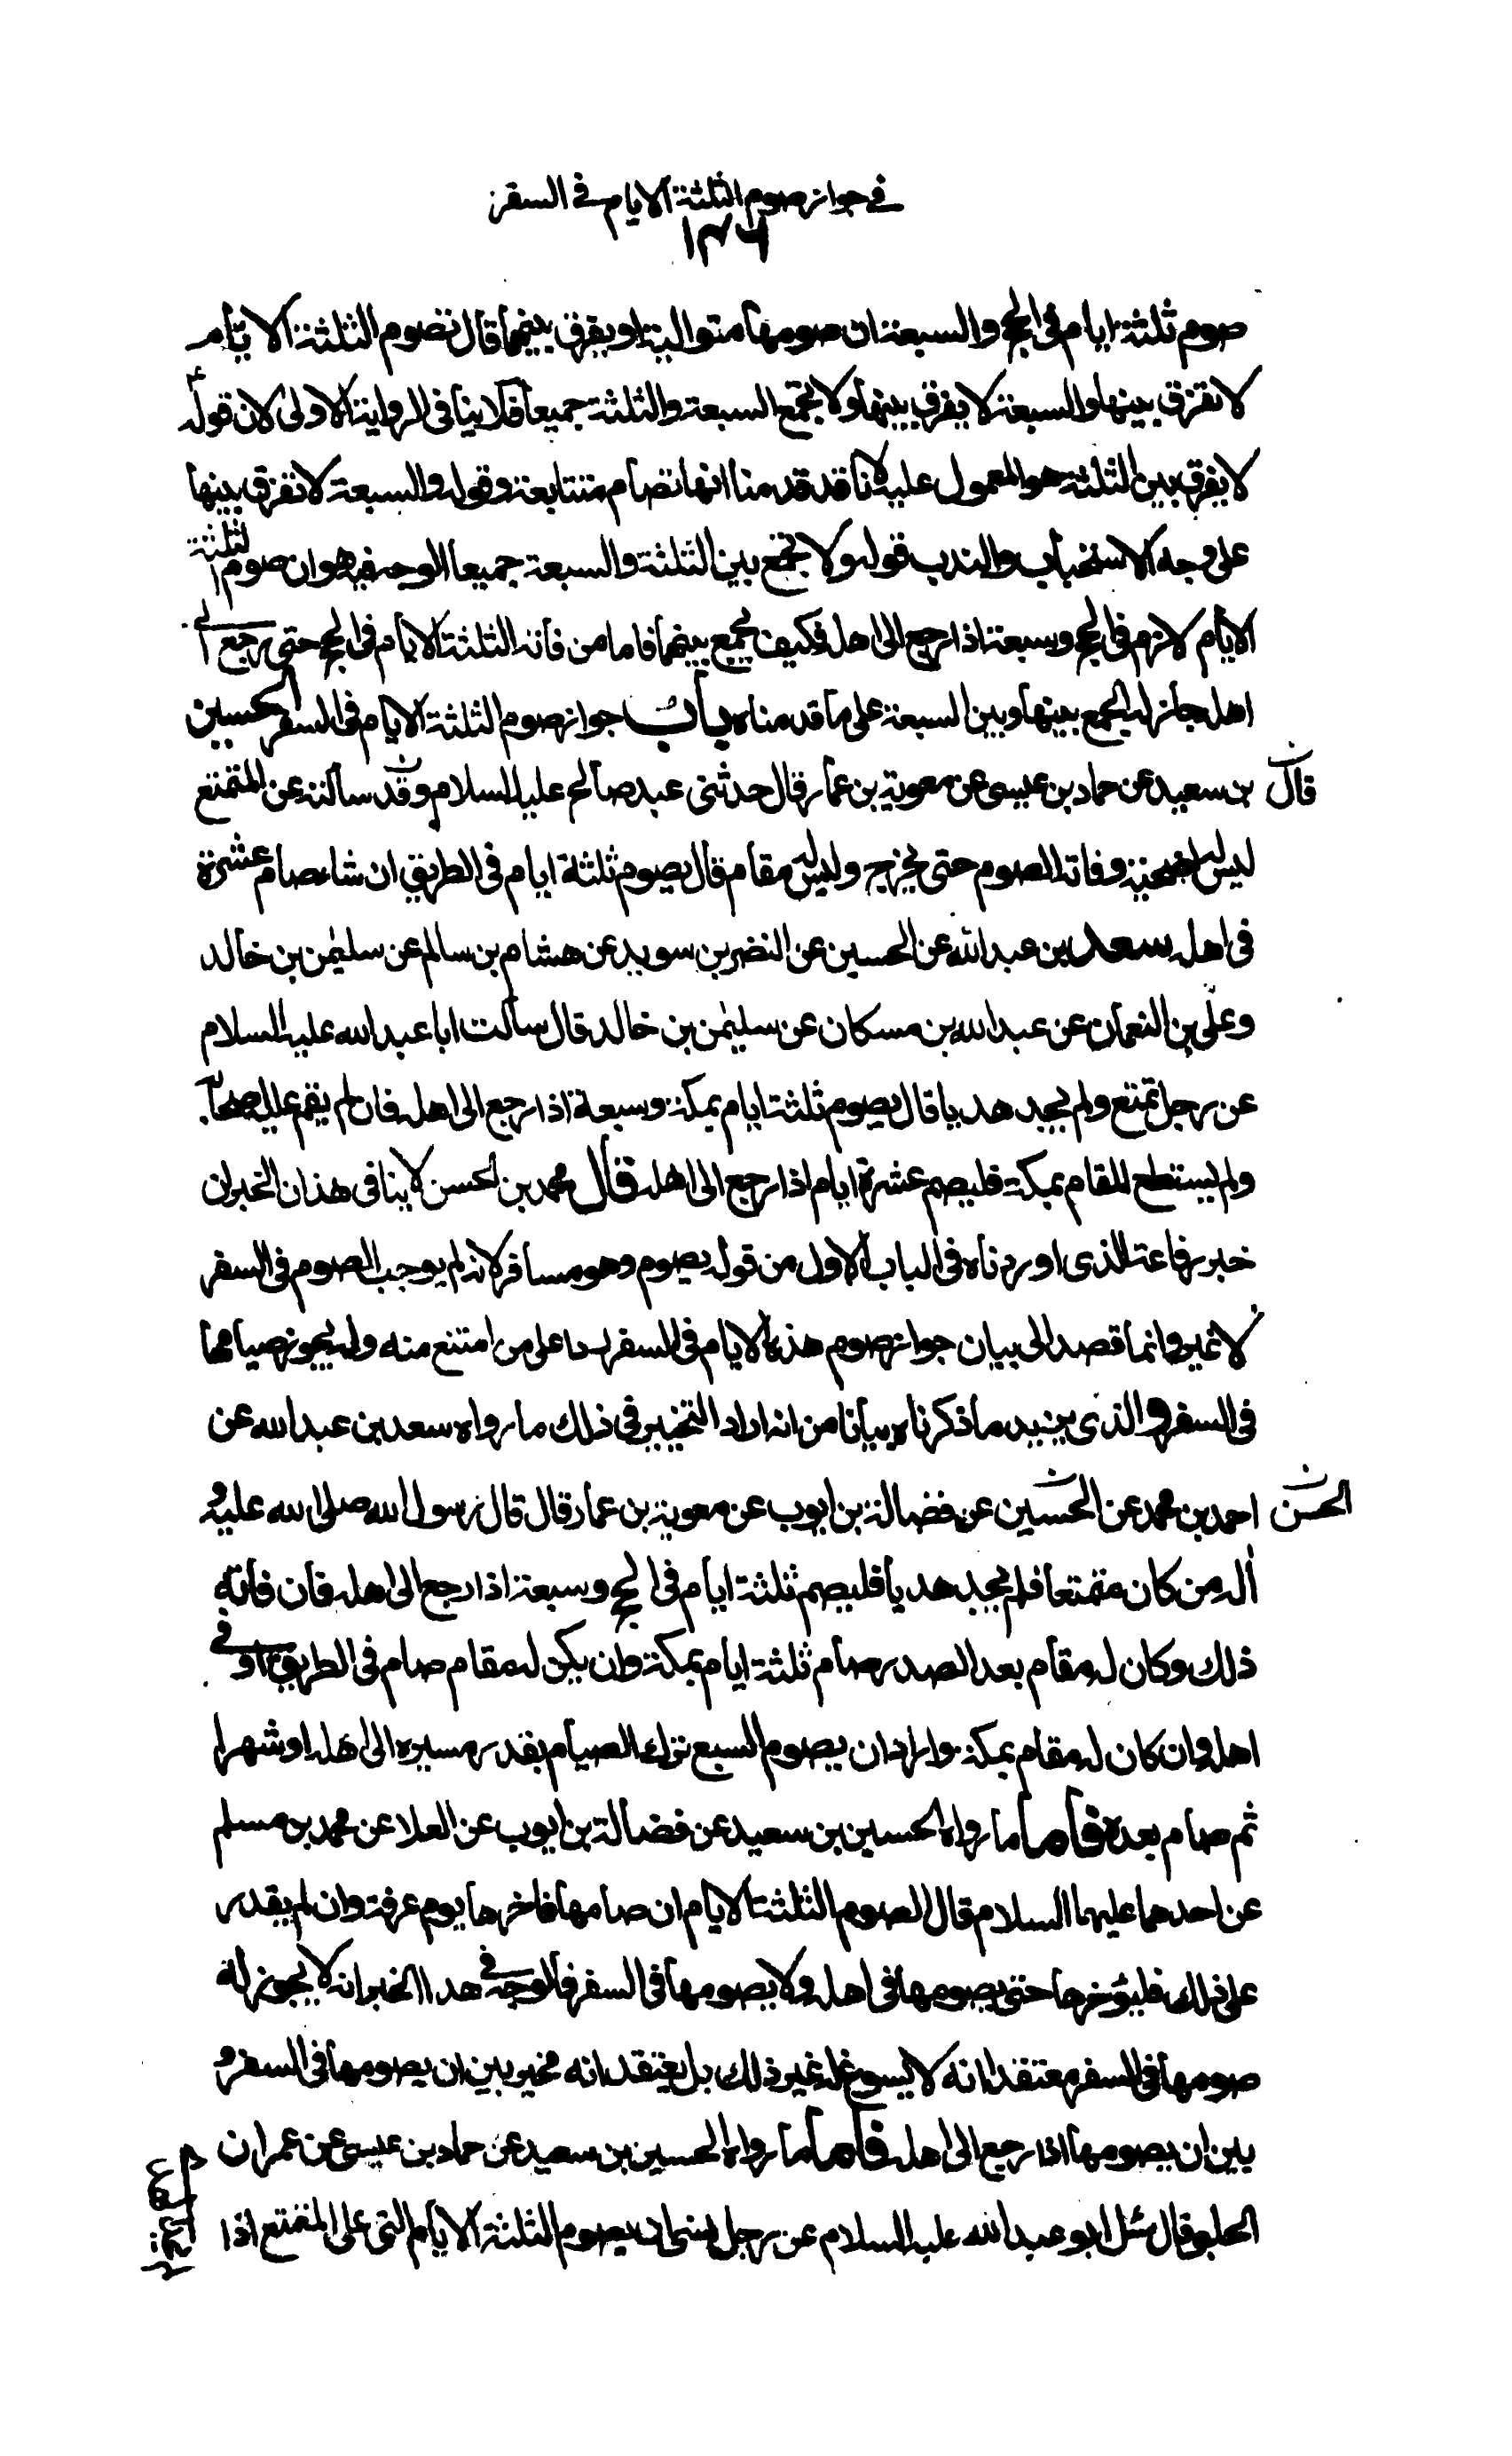 في جواز صوم الثلثة الايام في السفر
صوم ثلثة ايام في الحج والسبعة ان صومها متوالية او يفرق بينهما قال تصوم الثلثة الايام
لا تفرق بينها والسبعة لا يفرق بينها ولا يجمع السبعة والثلثة جميعا فلا ينافي الرواية الاولى لان قوله
لا يفرق بين الثلثة هو المعمول عليه لانا قد قدمنا انها تصام متتابعة وقوله والسبعة لا تفرق بينها
على وجه الاستحباب والندب قوله ولا تجمع بين الثلثة والسبعة جميعا الوجه فيه هو ان صوم الثلثة
الايام لازم في الحج وسبعة اذا رجع الى اهله فكيف يجمع بينهما فاما من فاته الثلثة الايام في الحج حتى يرجع الى
اهله جاز له الجمع بينها وبين السبعة على ما قدمناه باب جواز صوم الثلثة الايام في السفر الحسين
بن سعيد عن حماد بن عيسى عن معوية بن عمار قال حدثني عبد صالح عليه السلام وقد سألته عن المتمتع
قال
ليس له اضحية وفاته الصوم حتى يخرج وليس له مقام قال يصوم ثلثة ايام في الطريق ان شاء صام عشرة
في اهله سعد بن عبد الله عن الحسين عن النضر بن سويد عن هشام بن سالم عن سليمن بن خالد
وعلى بن النعمان عن عبد الله بن مسكان عن سليمن بن خالد قال سألت ابا عبد الله عليه السلام
عن رجل تمتع ولم يجد هديا قال يصوم ثلثة ايام بمكة وسبعة اذا رجع الى اهله فان لم يقم عليه اصحابه
ولم يستطع المقام بمكة فليصم عشرة ايام اذا رجع الى اهله قال محمد بن الحسن لا ينافي هذان الخبران
خبر رفاعة الذى اوردناه في الباب الاول من قوله يصوم وهو مسافر لانه لم يوجب الصوم في السفر
لا غير وانما قصد الى بيان جواز صوم هذه الايام في السفر ردا على من امتنع منه ولم يجوز صيامها
في السفر والذى يزيد ما ذكرناه بيانا من انه اراد التخيير في ذلك ما رواه سعد بن عبد الله عن
احمد بن محمد عن الحسين عن فضالة بن ايوب عن معوية بن عمار قال قال رسول الله صلى الله عليه و
الحسن
آله من كان متمتعا فلم يجد هديا فليصم ثلثة ايام في الحج وسبعة اذا رجع الى اهله فان فاته
ذلك وكان له مقام بعد الصدر صام ثلثة ايام بمكة وان يكن له مقام صام في الطريق او في
اهله وان كان له مقام بمكة واراد ان يصوم السبع ترك الصيام بقدر مسيره الى اهله او شهرا
ثم صام بعده فاما ما رواه الحسين بن سعيد عن فضالة بن ايوب عن العلا عن محمد بن مسلم
عن احدهما عليهما السلام قال الصوم الثلثة الايام ان صامها فاخرها يوم عرفة وان لم يقدر
على ذلك فليؤخرها حتى يصومها في اهله ولا يصومها في السفر فالوجه في هذا الخبر انه لا يجوز له
صومها في السفر معتقدا انه لا يسوغ له غير ذلك بل يعتقد انه مخير بين ان يصومها في السفر و
بين ان يصومها اذا رجع الى اهله فاما ما رواه الحسين بن سعيد عن حماد بن عيسى عن عمران
الحلبي قال سئل ابو عبد الله عليه السلام عن رجل نسى ان يصوم الثلثة الايام التى على المتمتع اذا